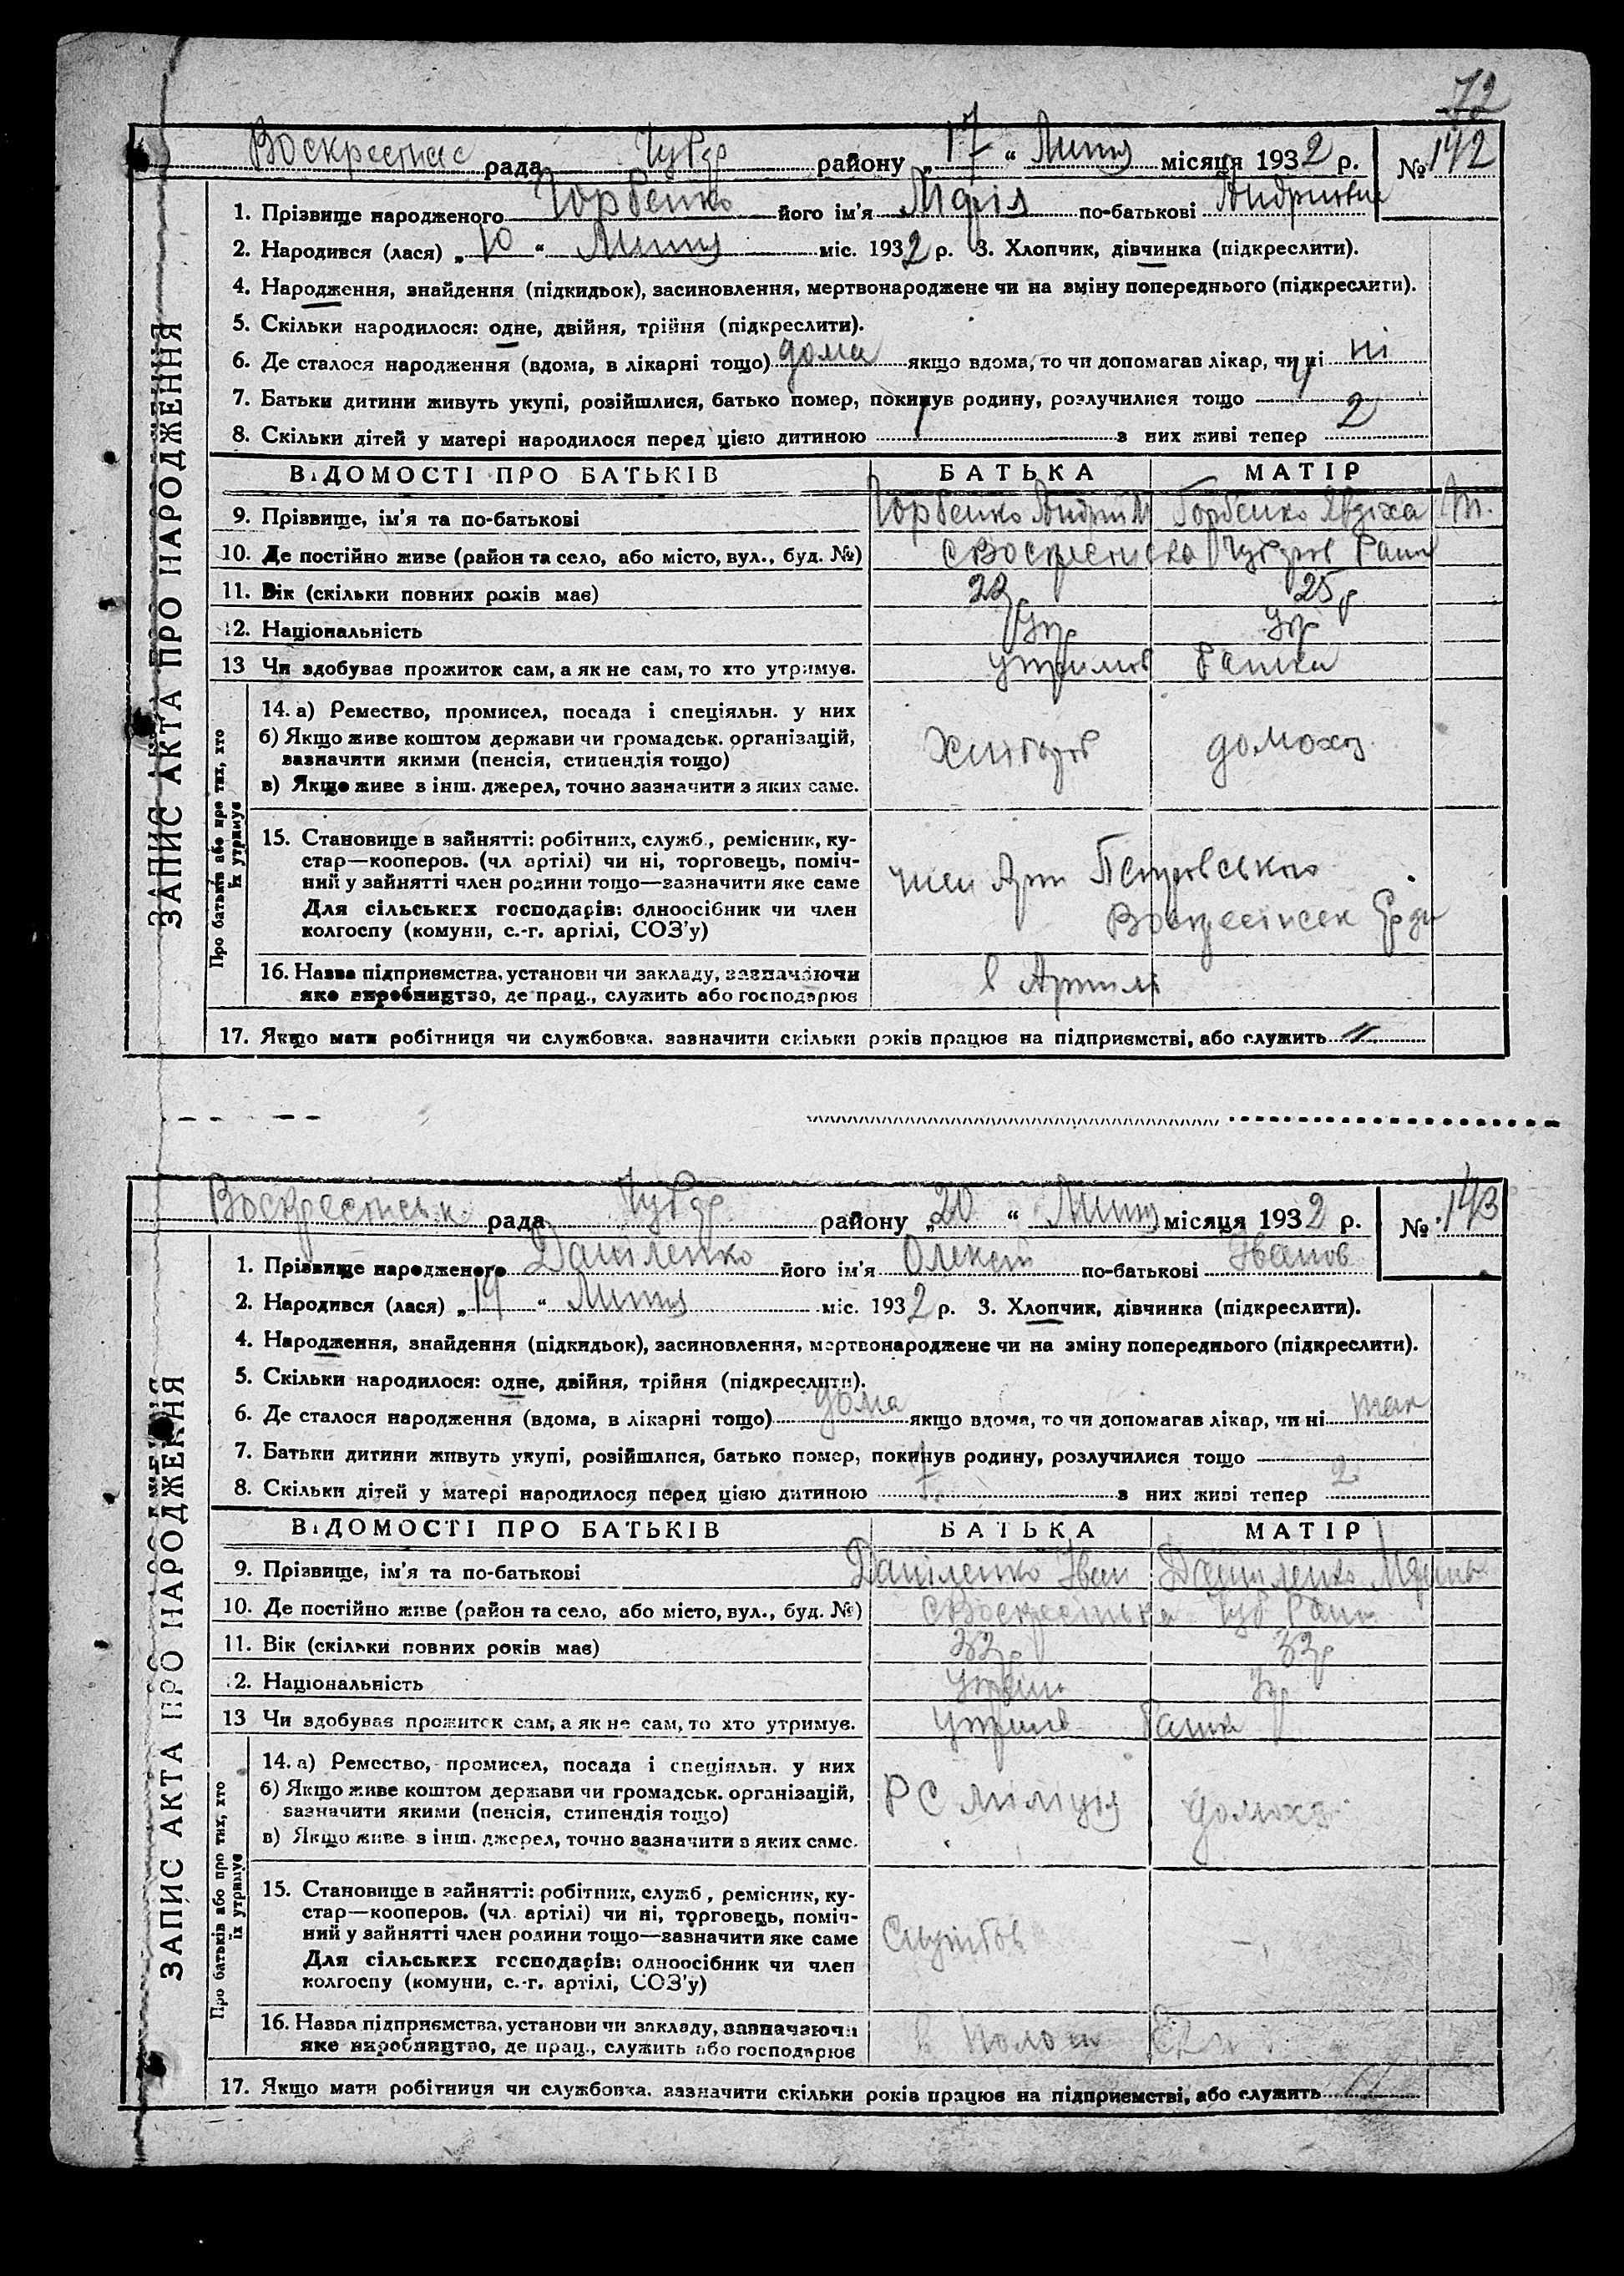 72
Воскресенс рада Чубар району „17“ Липня місяця 1932 р. № 142
1. Прізвище народженого Горбенко його ім'я Марія по-батькові
2. Народився (лася) „10“ Липня міс. 1932 р. 3. Хлопчик, дівчинка (підкреслити).
4. Народження, знайдення (підкидьок), засиновлення, мертвонароджене чи на зміну попереднього (підкреслити).
5. Скільки народилося: одне, двійня, трійня (підкреслити).
6. Де сталося народження (вдома, в лікарні тощо) дома якщо вдома, то чи допомагав лікар, чи ні ні
7. Батьки дитини живуть укупі, розійшлися, батько помер, покинув родину, розлучилися тощо
8. Скільки дітей у матері народилося перед цією дитиною з них живі тепер 2
ВІДОМОСТІ ПРО БАТЬКІВ БАТЬКА МАТІР
9. Прізвище, ім'я та по-батькові Горбенко Андрій М Горбенко Явдоха М.
10. Де постійно живе (район та село, або місто, вул., буд. №)
11. Вік (скільки повних років має) 25 р
12. Національність Укр Укр
13 Чи здобував прожиток сам, а як не сам, то хто утримує.
14. а) Ремество, промисел, посада і спеціяльн. у них
б) Якщо живе коштом держави чи громадськ. організацій,
зазначити якими (пенсія, стипендія тощо)
в) Якщо живе з інш. джерел, точно зазначити з яких саме.
Хлібороб домохоз
15. Становище в зайнятті: робітник, служб., ремісник, ку-
стар—кооперов. (чл. артілі) чи ні, торговець, поміч-
ний у зайнятті член родини тощо—зазначити яке саме
Для сільських господарів: одноосібник чи член
колгоспу (комуни, с.-г. артілі, СОЗ'у)
член Арт Петровського
16. Назва підприємства, установи чи закладу, зазначаючи
яке виробництво, де прац., служить або господарює
в Артилі
17. Якщо мати робітниця чи службовка. зазначити скільки років працює на підприємстві, або служить
ЗАПИС АКТА ПРО НАРОДЖЕННЯ
Про батьків або про тих, хто
їх утримує
Воскресенськ рада Чубар району „20“ Липня місяця 1932 р. № 143
1. Прізвище народженого Даніленко його ім'я Олексій по-батькові Іванов
2. Народився (лася) „19“ Липня міс. 1932 р. 3. Хлопчик, дівчинка (підкреслити).
4. Народження, знайдення (підкидьок), засиновлення, мертвонароджене чи на зміну попереднього (підкреслити).
5. Скільки народилося: одне, двійня, трійня (підкреслити).
6. Де сталося народження (вдома, в лікарні тощо) дома якщо вдома, то чи допомагав лікар, чи ні так
7. Батьки дитини живуть укупі, розійшлися, батько помер, покинув родину, розлучилися тощо
8. Скільки дітей у матері народилося перед цією дитиною з них живі тепер 2
ВІДОМОСТІ ПРО БАТЬКІВ БАТЬКА МАТІР
9. Прізвище, ім'я та по-батькові Даніленко Іван Даниленко
10. Де постійно живе (район та село, або місто, вул., буд. №)
11. Вік (скільки повних років має) 32р 33р
12. Національність Укр
13 Чи здобував прожиток сам, а як не сам, то хто утримує.
14. а) Ремество, промисел, посада і спеціяльн. у них
б) Якщо живе коштом держави чи громадськ. організацій,
зазначити якими (пенсія, стипендія тощо)
в) Якщо живе з інш. джерел, точно зазначити з яких саме.
РС Міліція домохоз
15. Становище в зайнятті: робітник, служб, ремісник, ку-
стар—кооперов. (чл. артілі) чи ні, торговець, поміч-
ний у зайнятті член родини тощо—зазначити яке саме
Для сільських господарів: одноосібник чи член
колгоспу (комуни, с.-г. артілі, СОЗ'у)
Службов
16. Назва підприємства, установи чи закладу, зазначаючи
яке виробництво, де прац., служить або господарює
17. Якщо мати робітниця чи службовка. зазначити скільки років працює на підприємстві, або служить
ЗАПИС АКТА ПРО НАРОДЖЕННЯ
Про батьків або про тих, хто
їх утримує